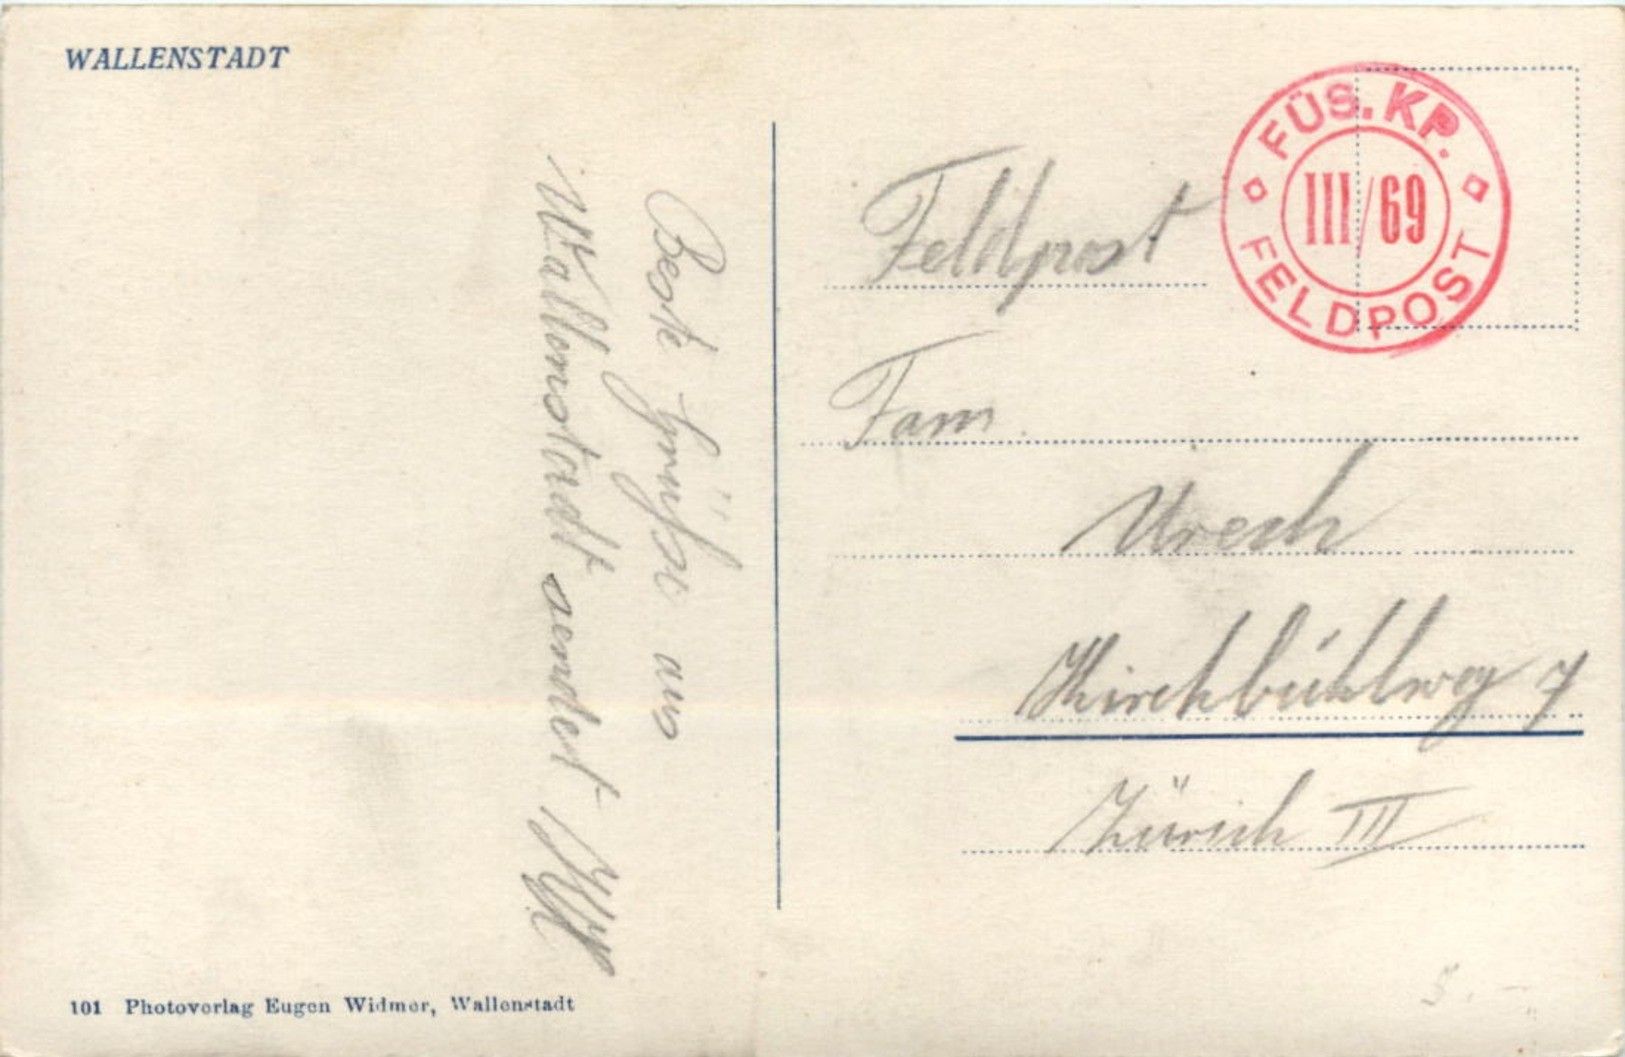 WALLENSTADT
Beste Grüsse aus
Wallenstadt sendet
FÜS. KP.
III/69
FELDPOST
Feldpost
Fam.
Urech
Kirchbühlweg 7
Zürich III
5.-
101 Photoverlag Eugen Widmer, Wallenstadt